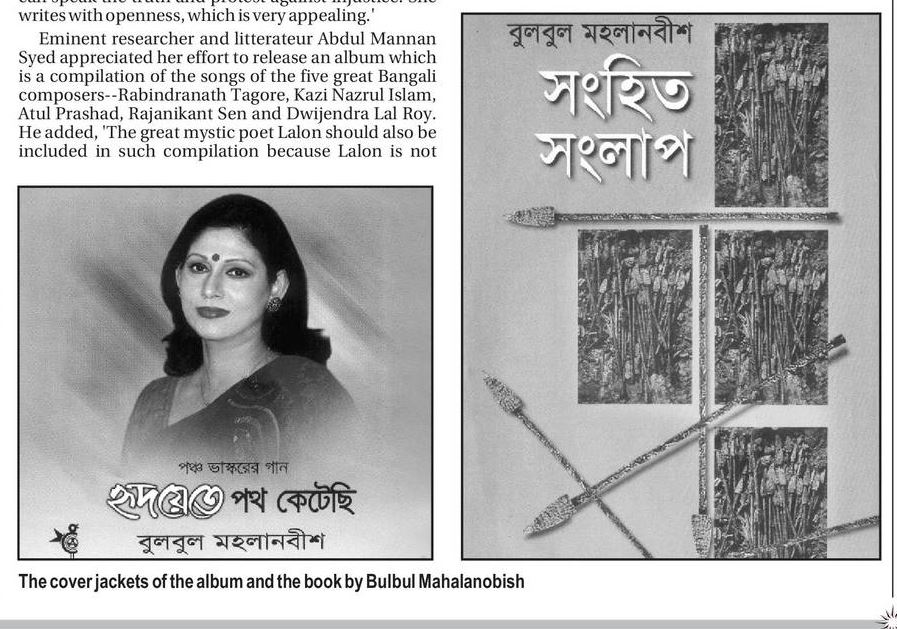 writes with openness, which is very appealing.'
Eminent researcher and litterateur Abdul Mannan
Syed appreciated her effort to release an album which
is a compilation of the songs of the five great Bangali
composers--Rabindranath Tagore, Kazi Nazrul Islam,
Atul Prashad, Rajanikant Sen and Dwijendra Lal Roy.
He added, 'The great mystic poet Lalon should also be
included in such compilation because Lalon is not
পঞ্চ ভাস্করের গান
হৃদয়েতে পথ কেটেছি
বুলবুল মহলানবীশ
বুলবুল মহলানবীশ
সংহিত
সংলাপ
The cover jackets of the album and the book by Bulbul Mahalanobish